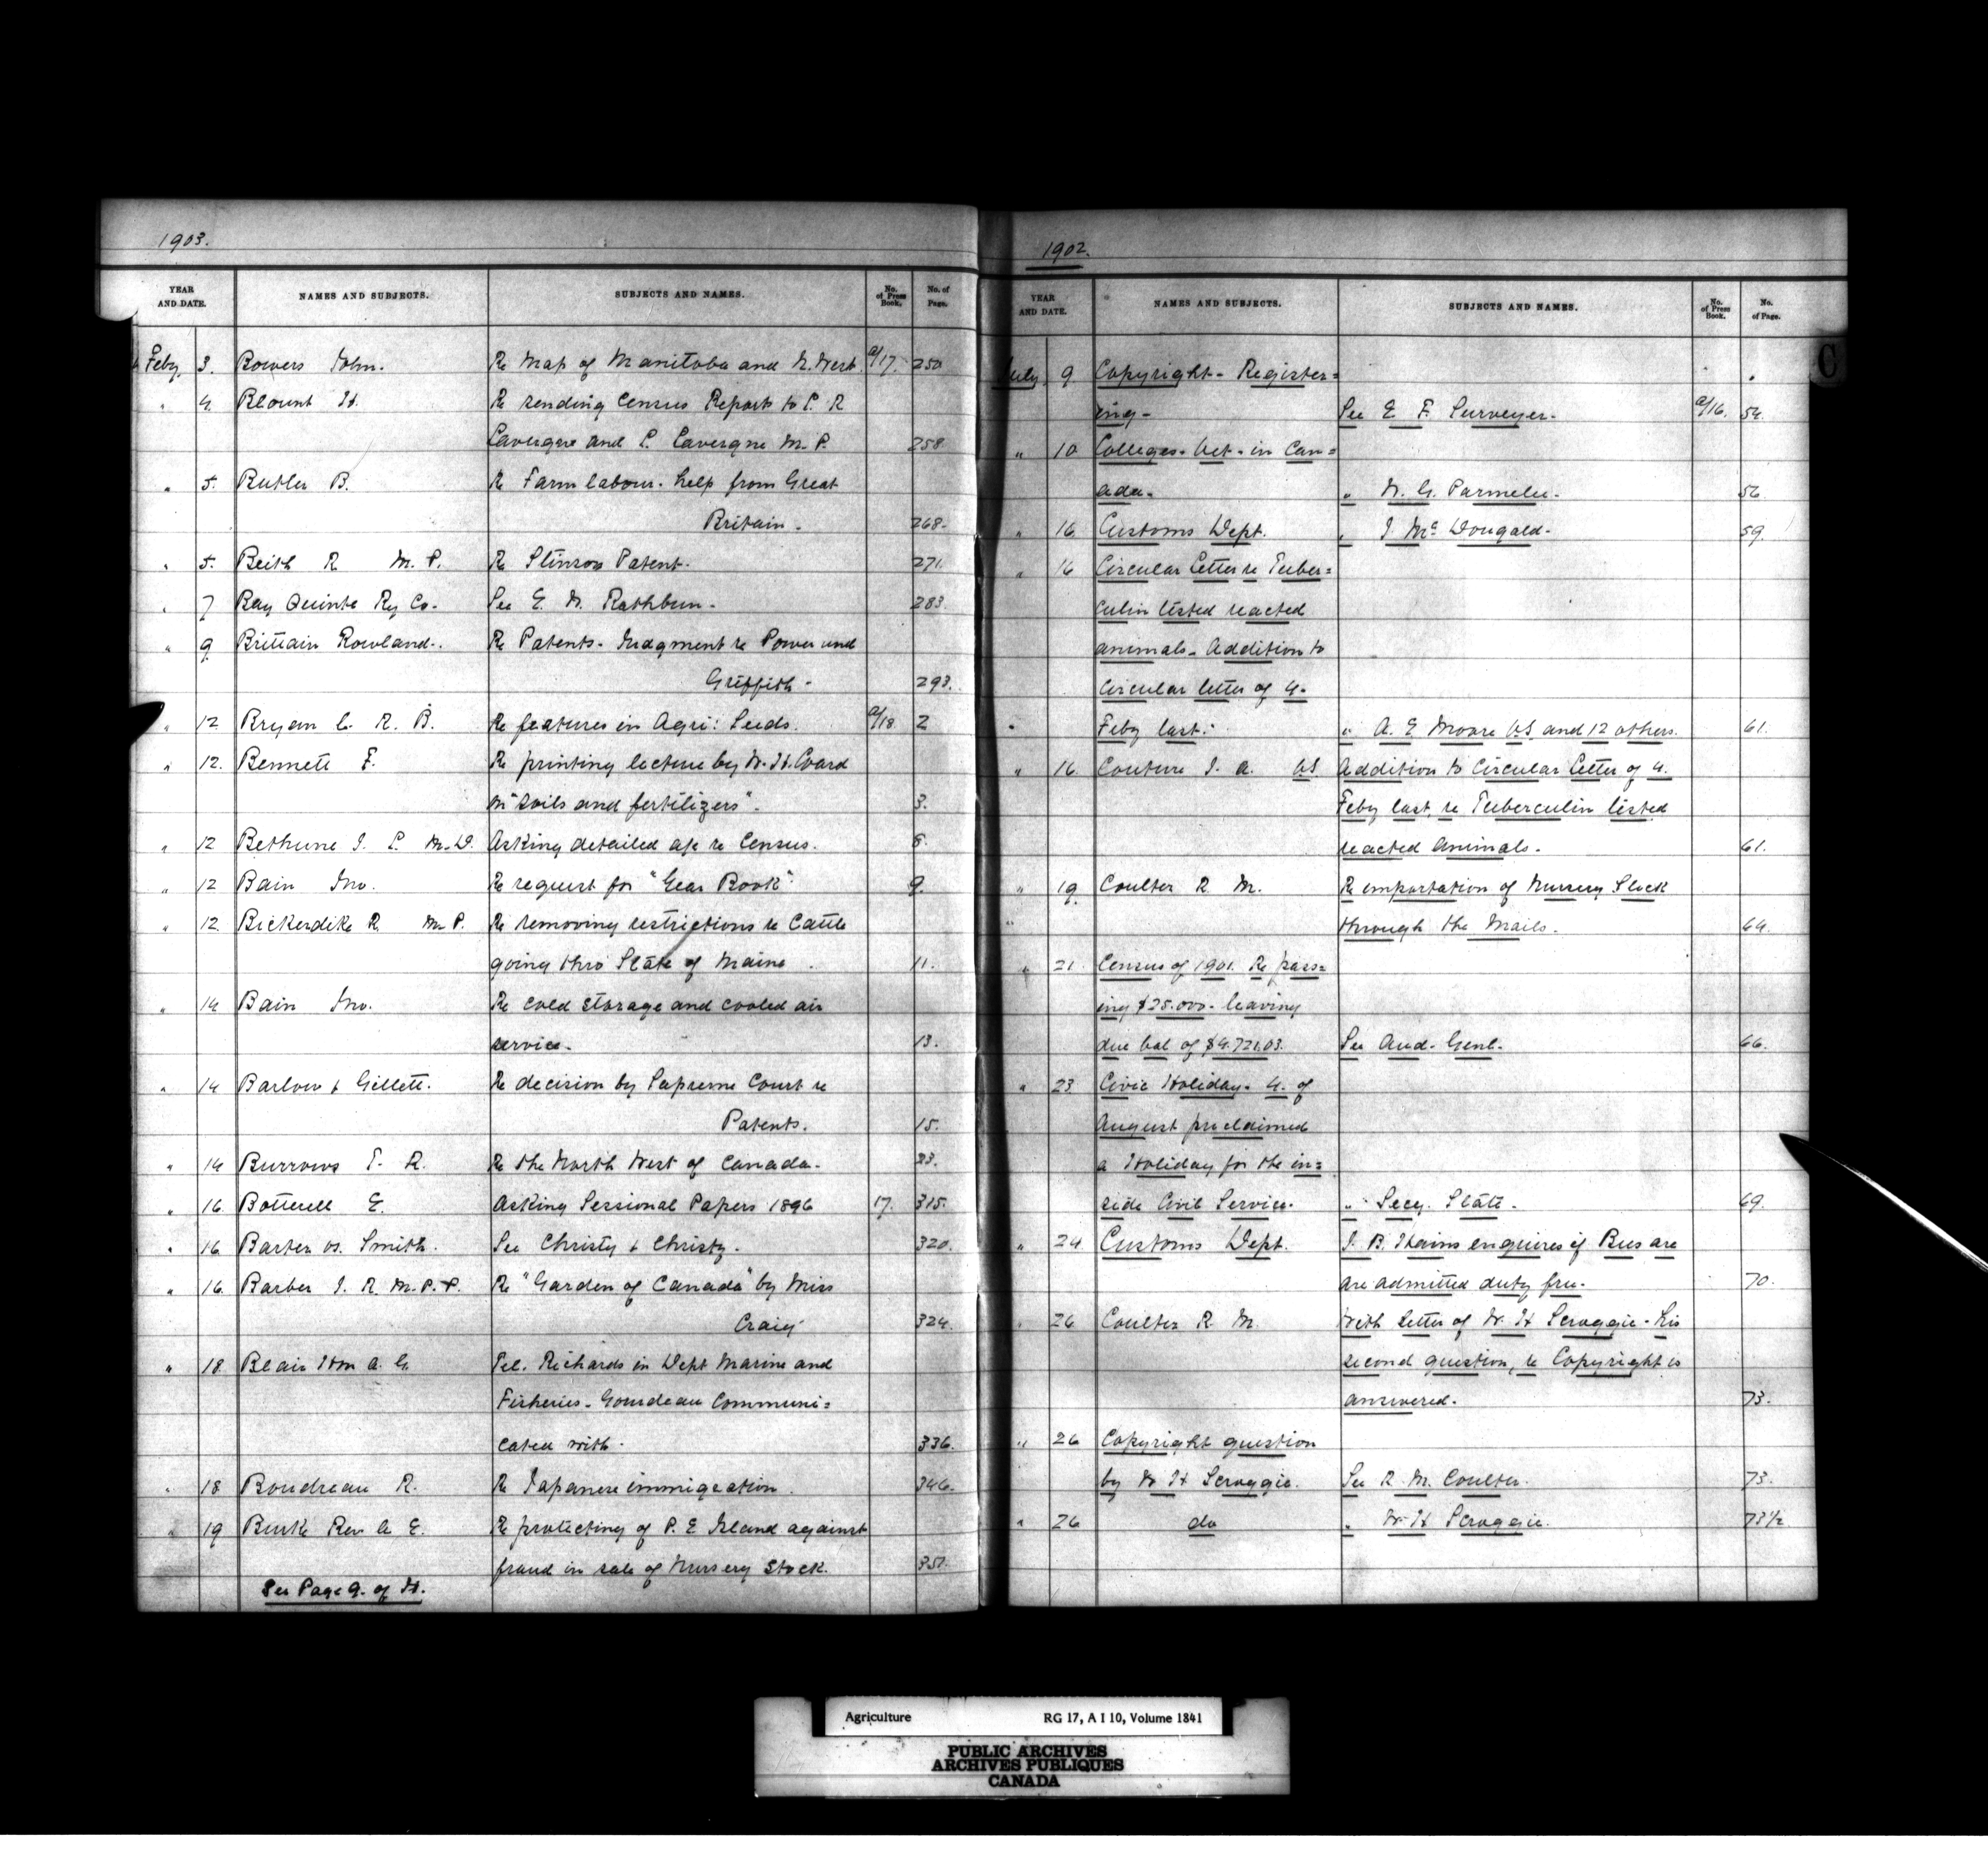 1903.
YEAR AND DATE. NAMES AND SUBJECTS. SUBJECTS AND NAMES. No. of Press Book. No. of Page.
Feby 3. Bowers John. Re Map of Manitoba and N. West a/17. 250
" 4. Blount H. Re sending Census Reports to P. R
Lavergne and L. Lavergne M.P. 258
" 5. Butler B. Re Farm labour. help from Great
Britain - 268-
" 5. Beith R M.P. Re Stinson Patent. 271.
" 7 Bay Quinte Ry Co. See E. W. Rathbun. 283
" 9 Brittain Rowland. Re Patents. Judgment re Power and
Griffith - 293.
" 12 Bryan C. R. B. Re features in Agri: Seeds. a/18 2
" 12. Bennett F. Re printing lecture by W. H. Coard
on "Soils and fertilizers". 3.
" 12 Bethune J. L. M.D. Asking detailed a/c re Census. 8.
" 12 Bain Jno. Re request for "Year Book" 9.
" 12. Bickerdike R. M.P. Re removing restrictions re Cattle
going thro State of Maine. 11.
" 14 Bain Jno. Re cold storage and cooled air
service. 13.
" 14 Barlow & Gillett. Re decision by Supreme Court re
Patents. 15.
" 14 Burrows T. R. Re the North West of Canada. 23.
" 16. Botterell E. Asking Sessional Papers 1896 17. 315.
" 16. Barter vs. Smith. See Christy & Christy. 320.
" 16. Barber J. R. M.P.P. Re "Garden of Canada" by Miss
Craig 324.
" 18. Blair Hon A. G. Tel. Richards in Dept Marine and
Fisheries - Gourdeau Communi=
cated with. 336.
" 18 Boudreau R. Re Japanese immigration. 346.
" 19 Burke Rev A. E. Re protecting of P. E Island against
fraud in sale of Nursery Stock. 351.
See Page 9. of H.
1902.
C
YEAR AND DATE. NAMES AND SUBJECTS. SUBJECTS AND NAMES. No. of Press Book. No. of Page.
July 9 Copyright - Register=
ing - See E. F. Surveyer. a/16. 54.
" 10 Colleges. Vet. in Can=
ada. " W. G. Parmelee. 56
" 16. Customs Dept. " J McDougald. 59.
" 16 Circular Letter re Tuber=
culin tested reacted
animals. Addition to
Circular letter of 4.
Feby last. " A. E Moore V.S. and 12 others. 61.
" 16. Couture J. A. V.S. Addition to Circular Letter of 4.
Feby last, re Tuberculin tested
reacted animals. 61.
" 19. Coulter R. M. Re importation of Nursery Stock
" through the Mails. 64.
" 21. Census of 1901. Re pass=
ing $25.000. leaving
due bal of $4.721.03. See Aud. Genl. 66.
" 23 Civic Holiday. 4. of
August proclaimed
a Holiday for the in=
side Civil Service. " Secy. State. 69.
" 24 Customs Dept. J. B. Hains enquires if Bees are
are admitted duty free. 70.
" 26 Coulter R. M. With letter of W. H Scroggie. His
second question, re Copyright is
answered. 73.
" 26 Copyright question
by W H Scroggie. See R. M. Coulter. 73.
" 26 do " W. H Scroggie. 73½
Agriculture RG 17, A I 10, Volume 1841
PUBLIC ARCHIVES
ARCHIVES PUBLIQUES
CANADA